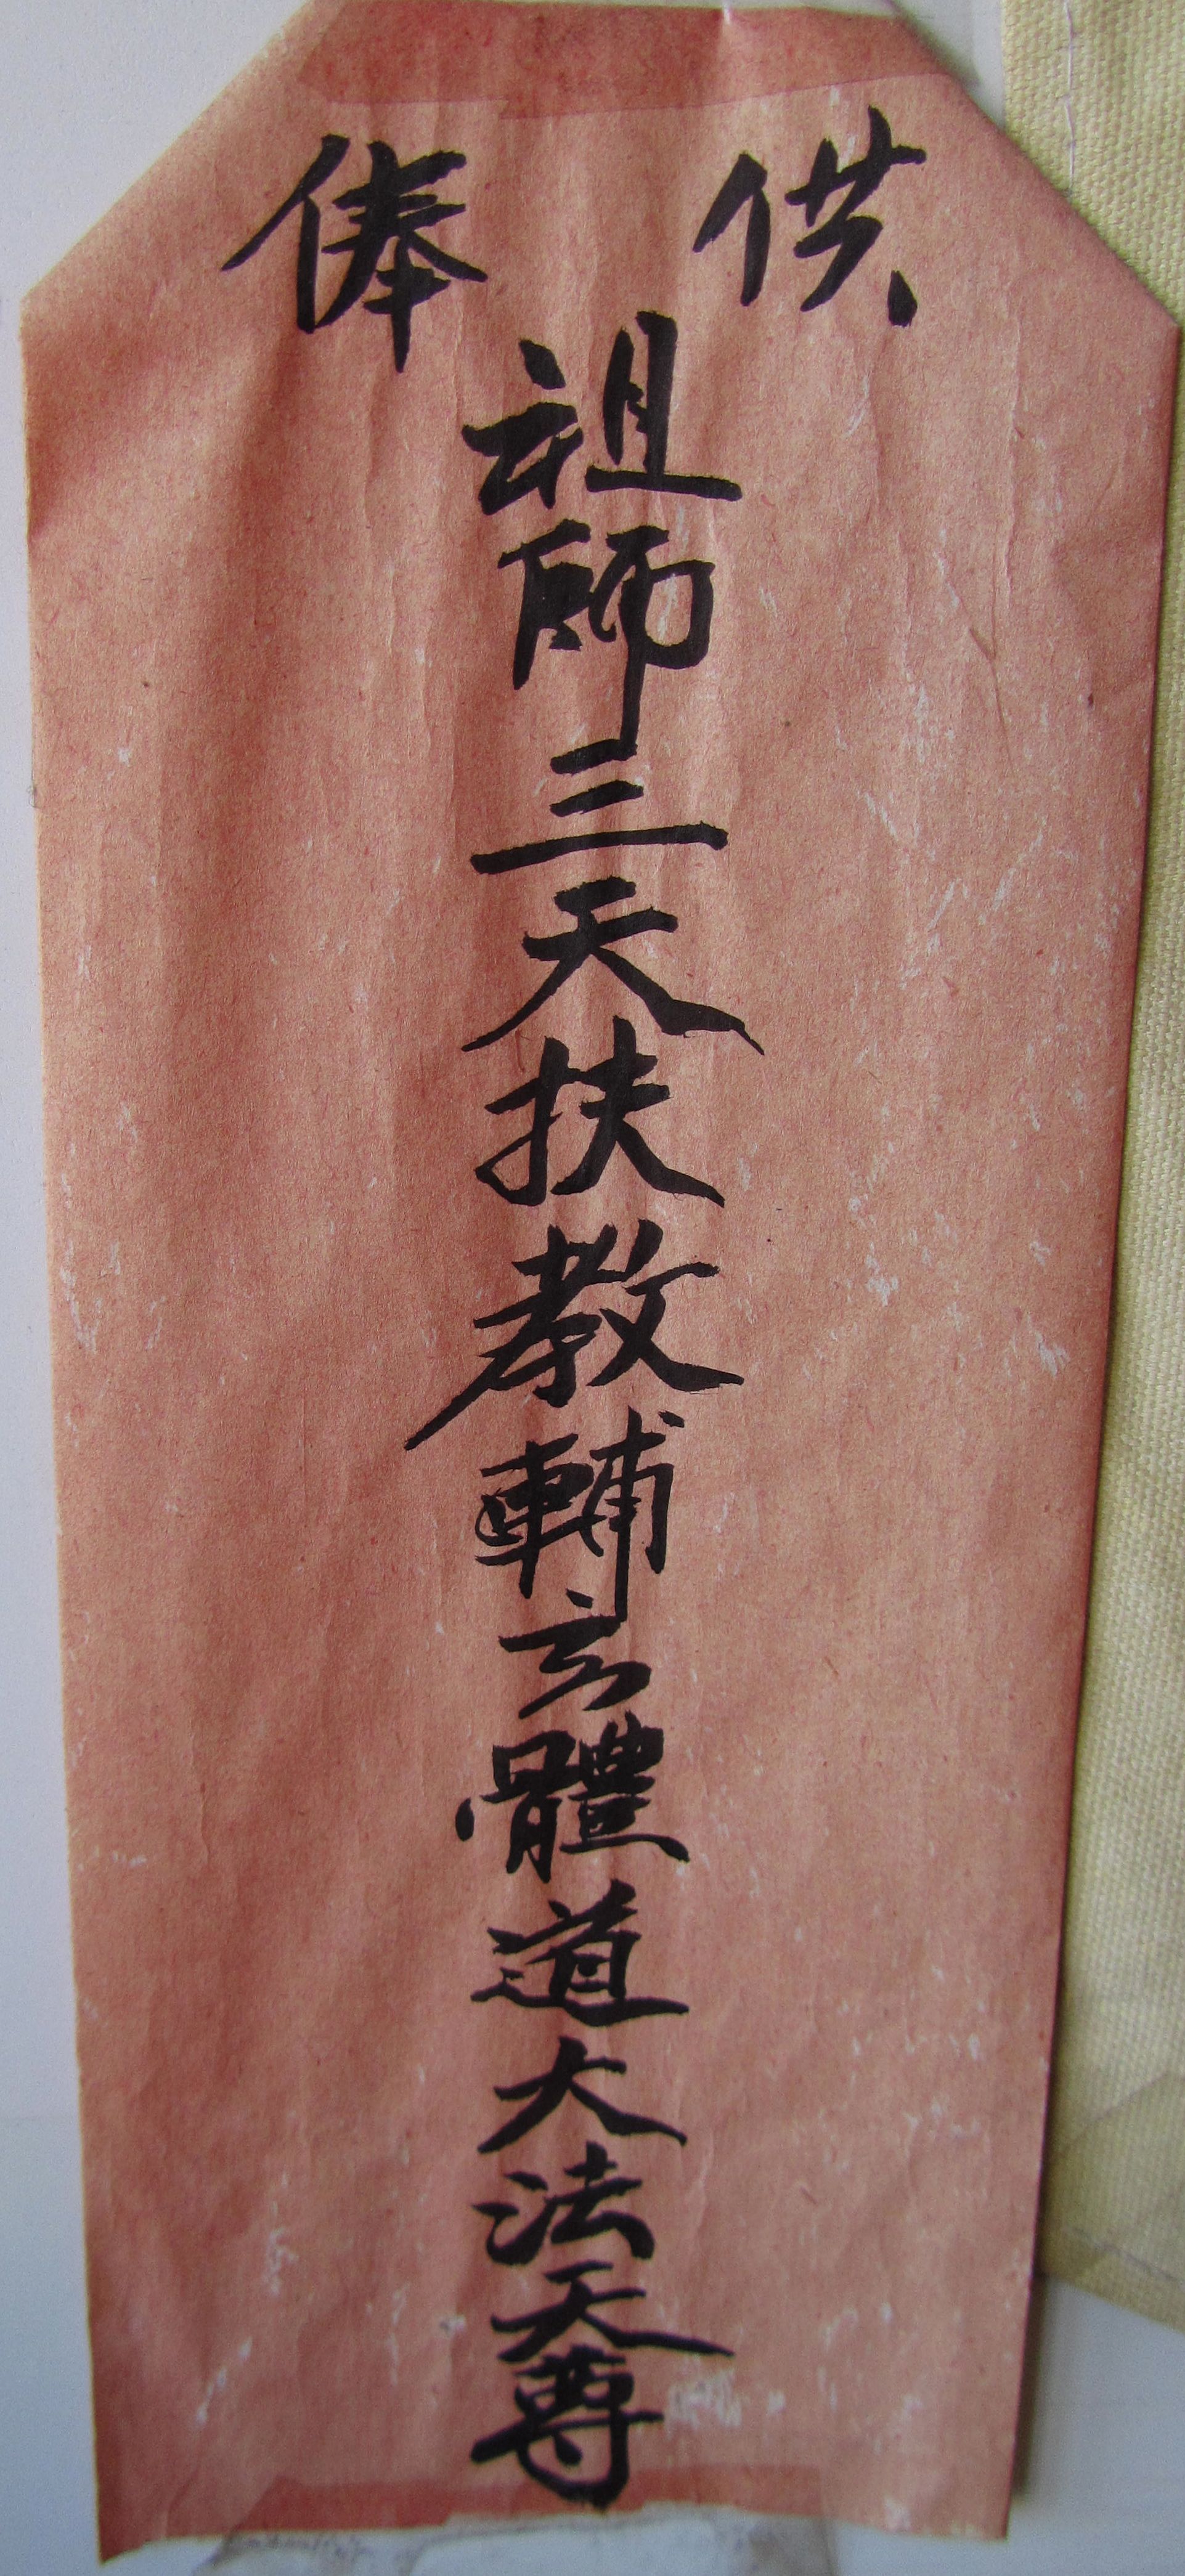 供俸
祖師三天扶教輔玄體道大法天尊